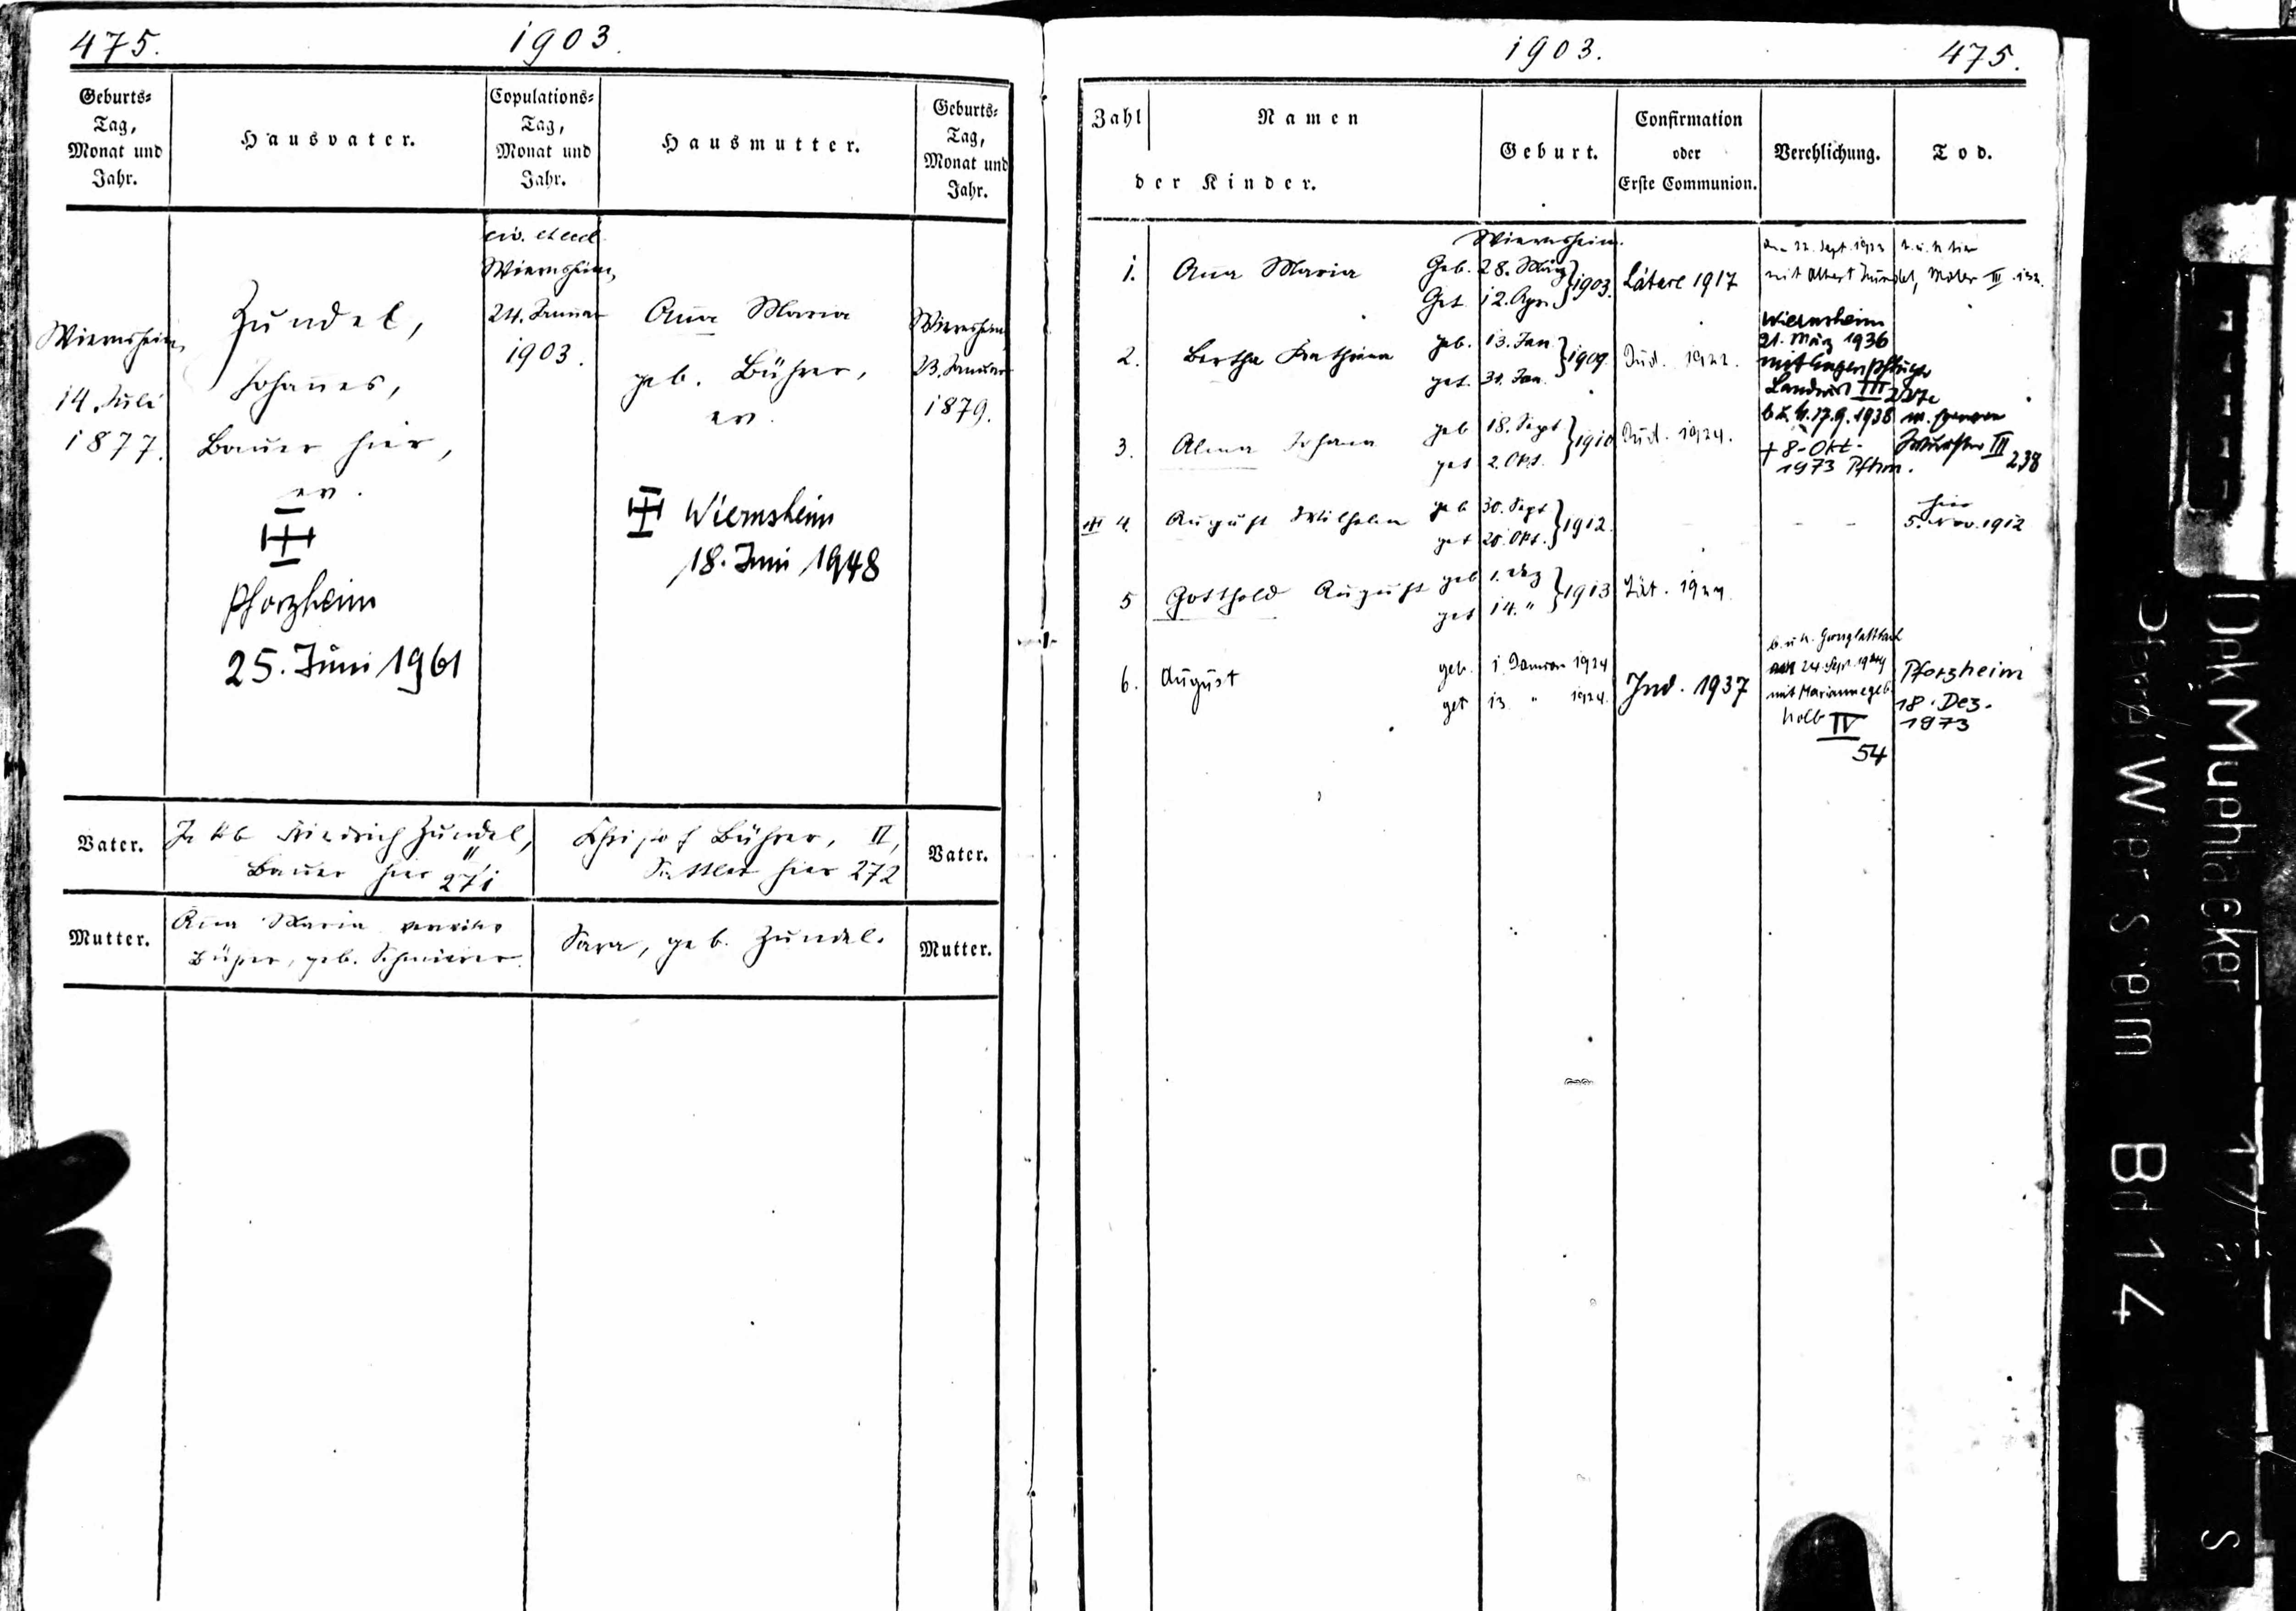 475.
1903.
Geburts-
Tag,
Monat und
Jahr.
Hausvater.
Copulations-
Tag,
Monat und
Jahr.
Hausmutter.
Geburts-
Tag,
Monat und
Jahr.
Wiernsheim,
14. Juli
1877.
Zundel,
Johannes,
Bauer hier,
ev.
Pforzheim
25. Juni 1961
Wiernsheim,
24. Januar
1903.
Anna Maria
geb. Bührer,
ev.
Wiernsheim
18. Juni 1948
Wiernsheim
23. Januar
1879.
Vater.
Friedrich Zundel,
Bauer hier 271
Christof Bührer, II,
Sattler hier 272
Vater.
Mutter.
Anna Maria
geb.
Sara, geb. Zundel.
Mutter.
1903.
475.
Zahl
Namen
der Kinder.
Geburt.
Confirmation
oder
Erste Communion.
Verehlichung.
Tod.
Wiernsheim.
1. Anna Maria Geb. 28. März 1903. Lätare 1917
Get. 12. Apr.
mit Albert Zundel, III
2. Bertha Kathrina geb. 13. Jan. 1909 Jud. 1922.
get. 31. Jan.
Wiernsheim
21. März 1936
mit
III
3. Alma geb 18. Sept 1910 Jud. 1924.
get 2. Okt.
17.9.1938
III 238
+ 8. Okt.
1973 Pfhm.
4. August Wilhelm geb 30. Sept 1912.
get 20. Okt.
hier
5. Nov. 1912
5 Gotthold August geb 1. Dez 1913
get 14. "
6. August geb. 1. Januar 1924 Jud. 1937
get 13 " 1924.
24. Sept.
mit Marianne geb.
Kolb IV
54
Pforzheim
18. Dez.
1973
Dek Muehlacker
Bd 14